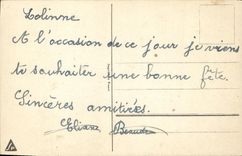 A l'occasion de ce jour je viens
te souhaiter une bonne fête.
Sincères amitiées.
Eliane